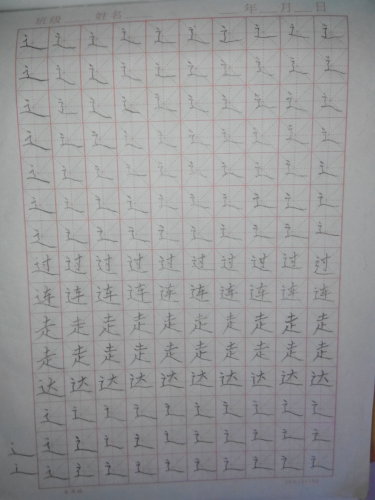 班级 姓名 年 月 日
辶 辶 辶 辶 辶 辶 辶 辶 辶 辶
辶 辶 辶 辶 辶 辶 辶 辶 辶 辶
辶 辶 辶 辶 辶 辶 辶 辶 辶 辶
辶 辶 辶 辶 辶 辶 辶 辶 辶 辶
辶 辶 辶 辶 辶 辶 辶 辶 辶 辶
辶 辶 辶 辶 辶 辶 辶 辶 辶 辶
辶 辶 辶 辶 辶 辶 辶 辶 辶 辶
过 过 过 过 过 过 过 过 过 过
连 连 连 连 连 连 连 连 连 连
走 走 走 走 走 走 走 走 走 走
走 走 走 走 走 走 走 走 走 走
达 达 达 达 达 达 达 达 达 达
辶 辶 辶 辶 辶 辶 辶 辶 辶 辶
辶 辶 辶 辶 辶 辶 辶 辶 辶 辶 辶
辶 辶 辶 辶 辶 辶 辶 辶 辶 辶 辶